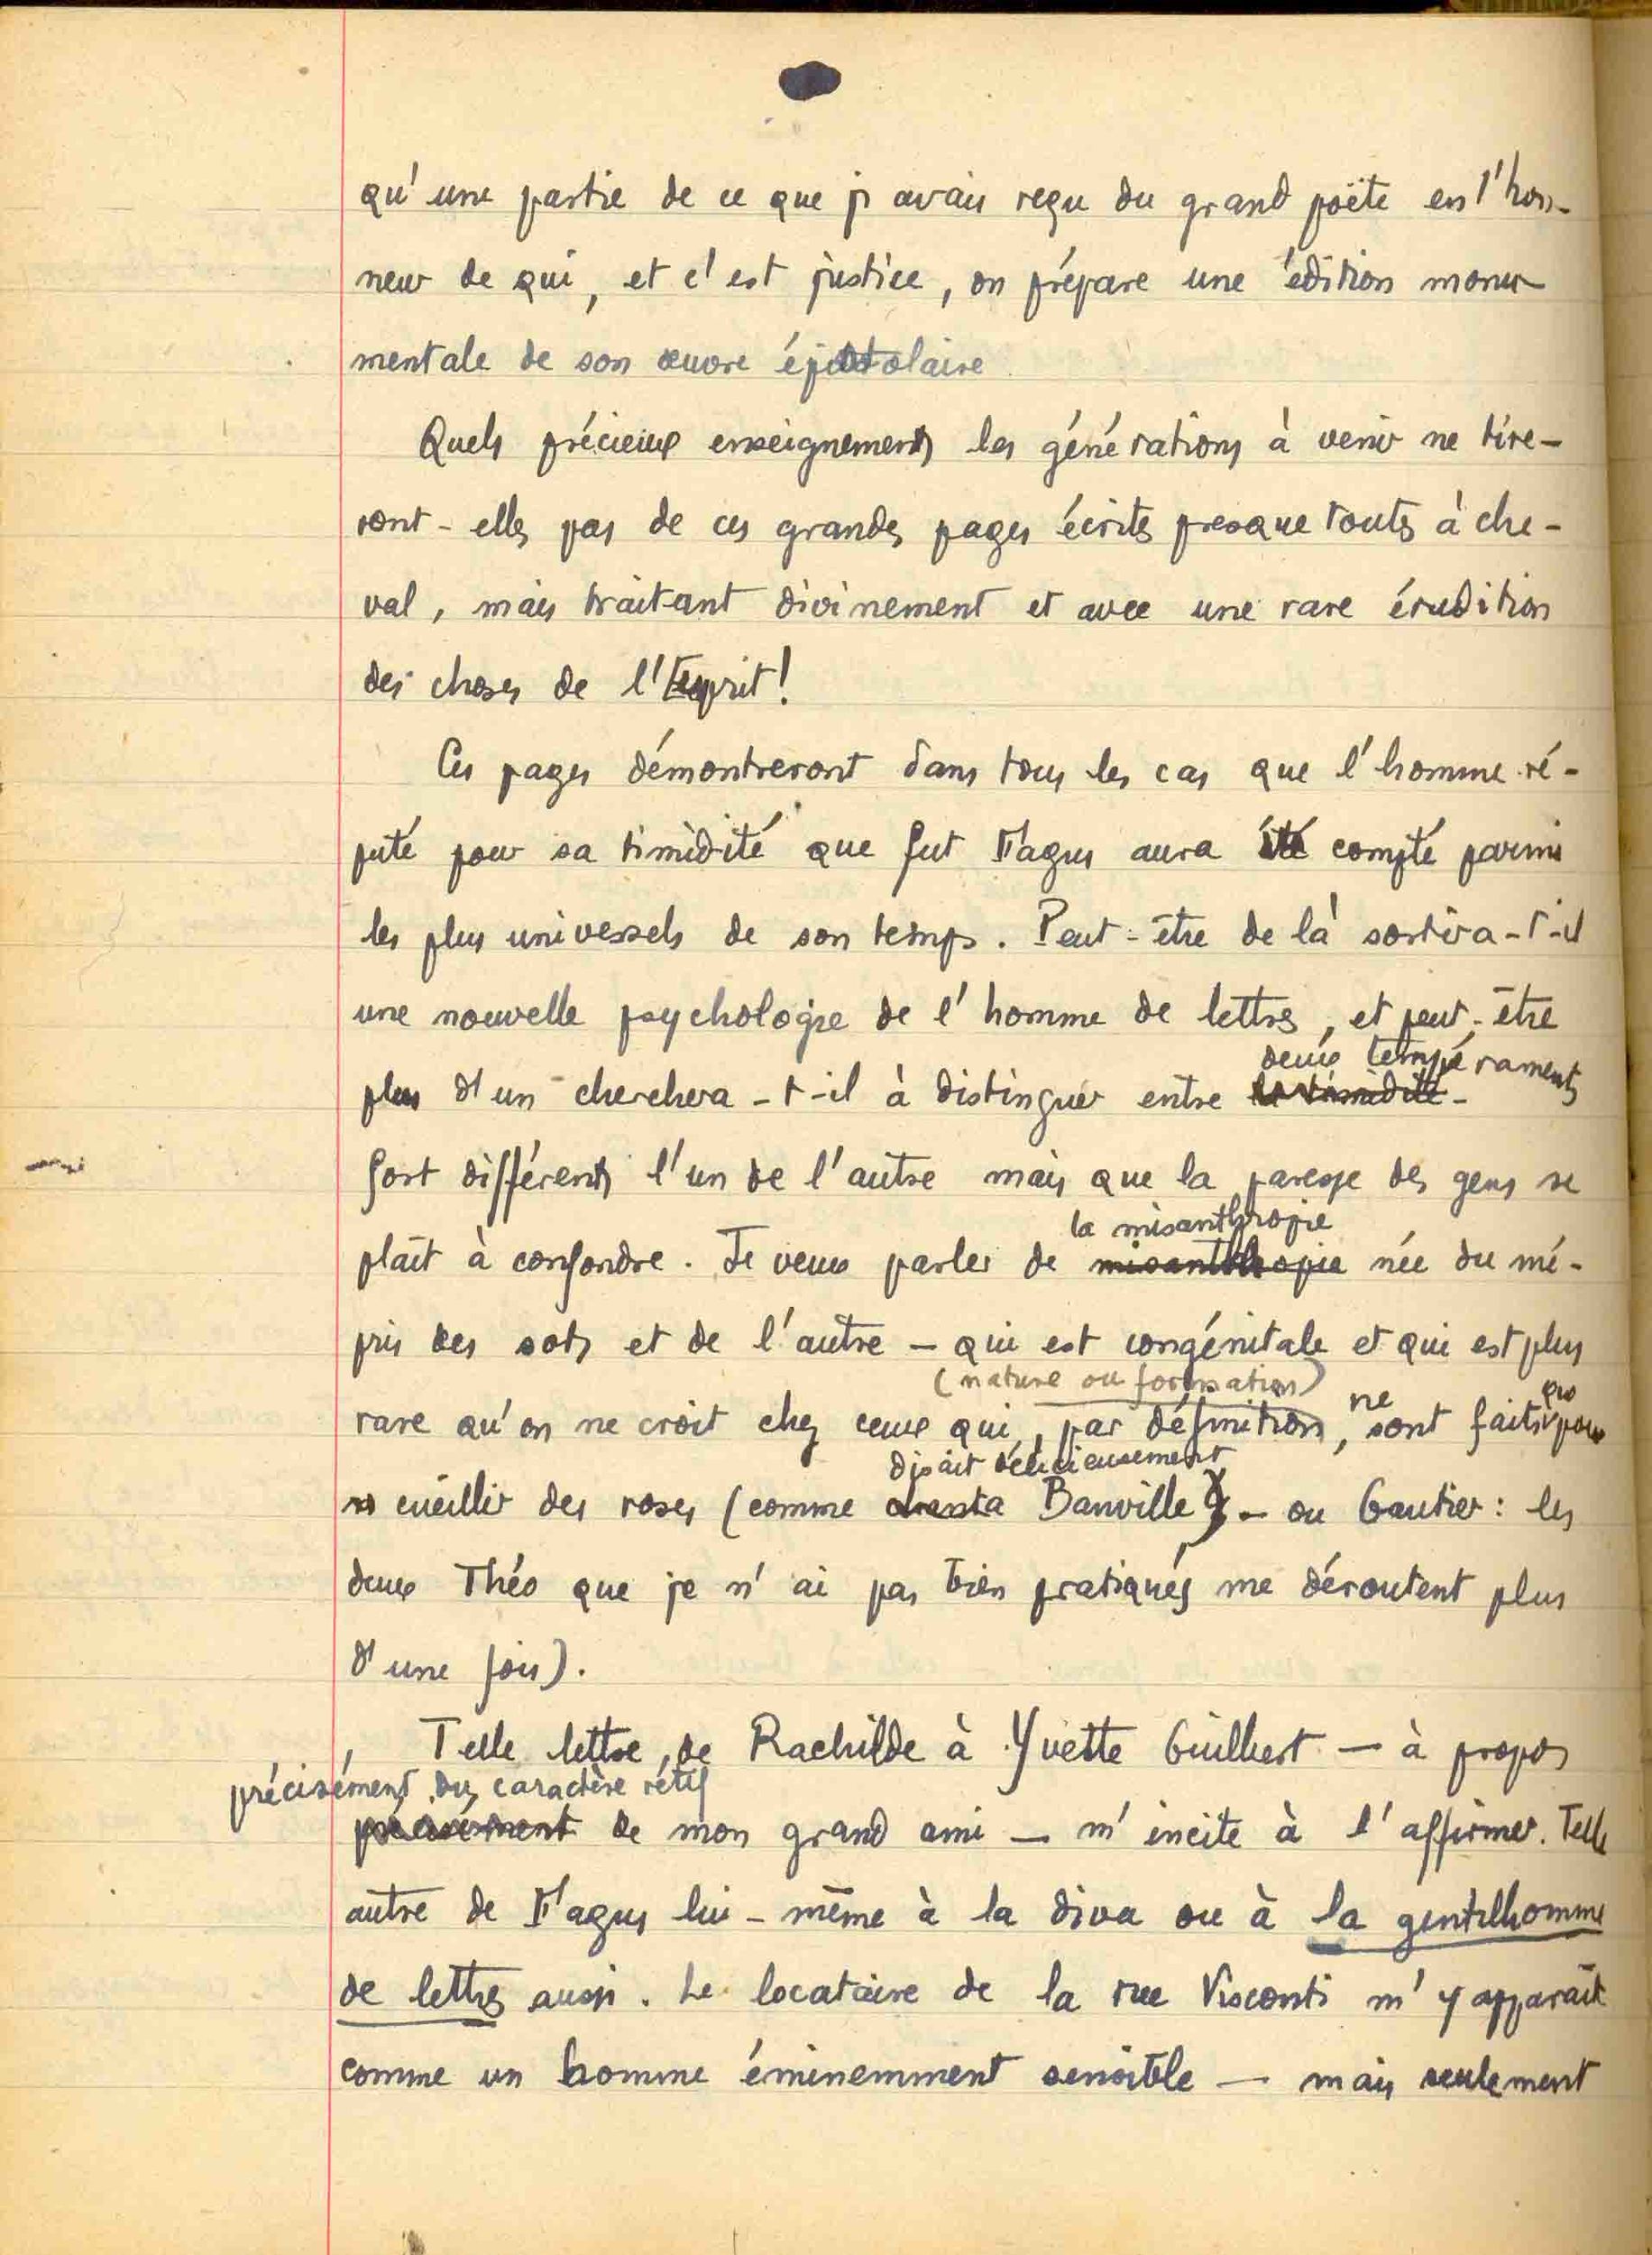 qu'une partie de ce que j'avais reçu du grand poëte en l'hon-
neur de qui, et c'est justice, on prépare une édition monu-
mentale de son œuvre épistolaire.
Quels précieux enseignements les générations à venir ne tire-
ront-elles pas de ces grandes pages écrites presque toutes à che-
val, mais traitant divinement et avec une rare érudition
des choses de l'Esprit!
Ces pages démontreront dans tous les cas que l'homme ré-
puté pour sa timidité que fut Fagus aura été compté parmi
les plus universels de son temps. Peut-être de là sortira-t-il
une nouvelle psychologie de l'homme de lettres, et peut-être
deux tempéraments
plus d'un cherchera-t-il à distinguer entre la timidité-
fort différents l'un de l'autre mais que la paresse des gens se
la misanthropie
plaît à confondre. Je veux parler de misanthropie née du mé-
pris des sots et de l'autre — qui est congénitale et qui est plus
(nature ou formation)
rare qu'on ne croit chez ceux qui, par définition, ne sont faits que pour
disait délicieusement
cueillir des roses (comme Banville) — ou Gautier : les
deux Théo que je n'ai pas bien pratiqués me déroutent plus
d'une fois).
Telle lettre de Rachilde à Yvette Guilbert — à propos
précisément du caractère rétif
précisément de mon grand ami — m'incite à l'affirmer. Telle
autre de Fagus lui-même à la diva ou à la gentilhomme
de lettres aussi. Le locataire de la rue Visconti m'y apparaît
comme un homme éminemment sensible — mais seulement